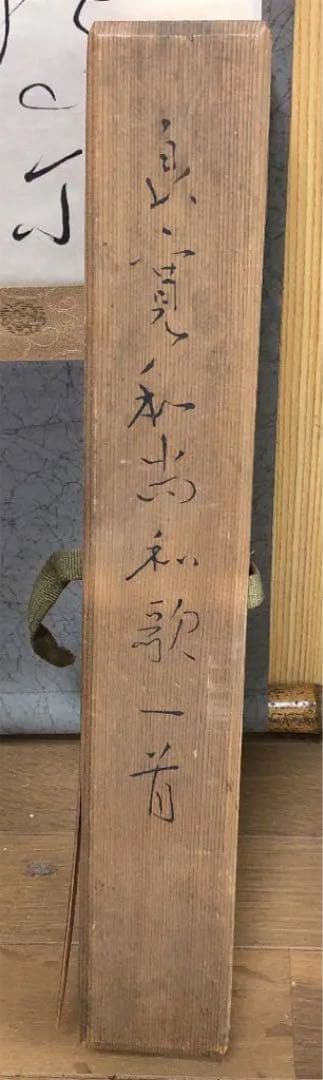 良寛和尚和歌一首